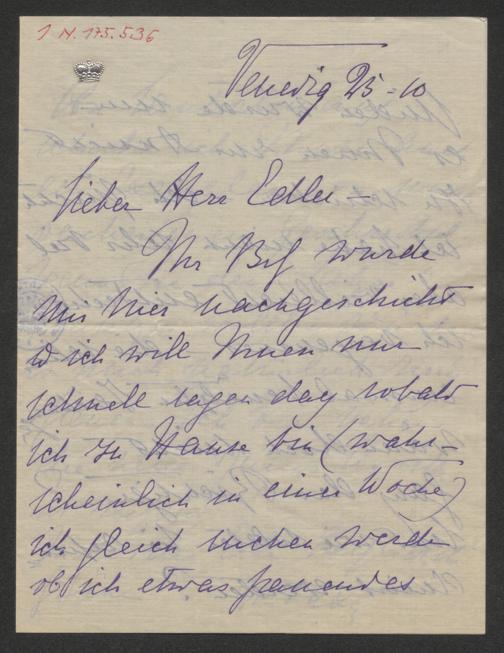 1 N. 175.536
Venedig 25-10
Lieber Herr Edler –
Ihr Brf wurde
mir hier nachgeschickt
u ich will Ihnen nur
schnell sagen dass sobald
ich zu Hause bin (wahr-
scheinlich in einer Woche)
ich gleich suchen werde
ob ich etwas passendes